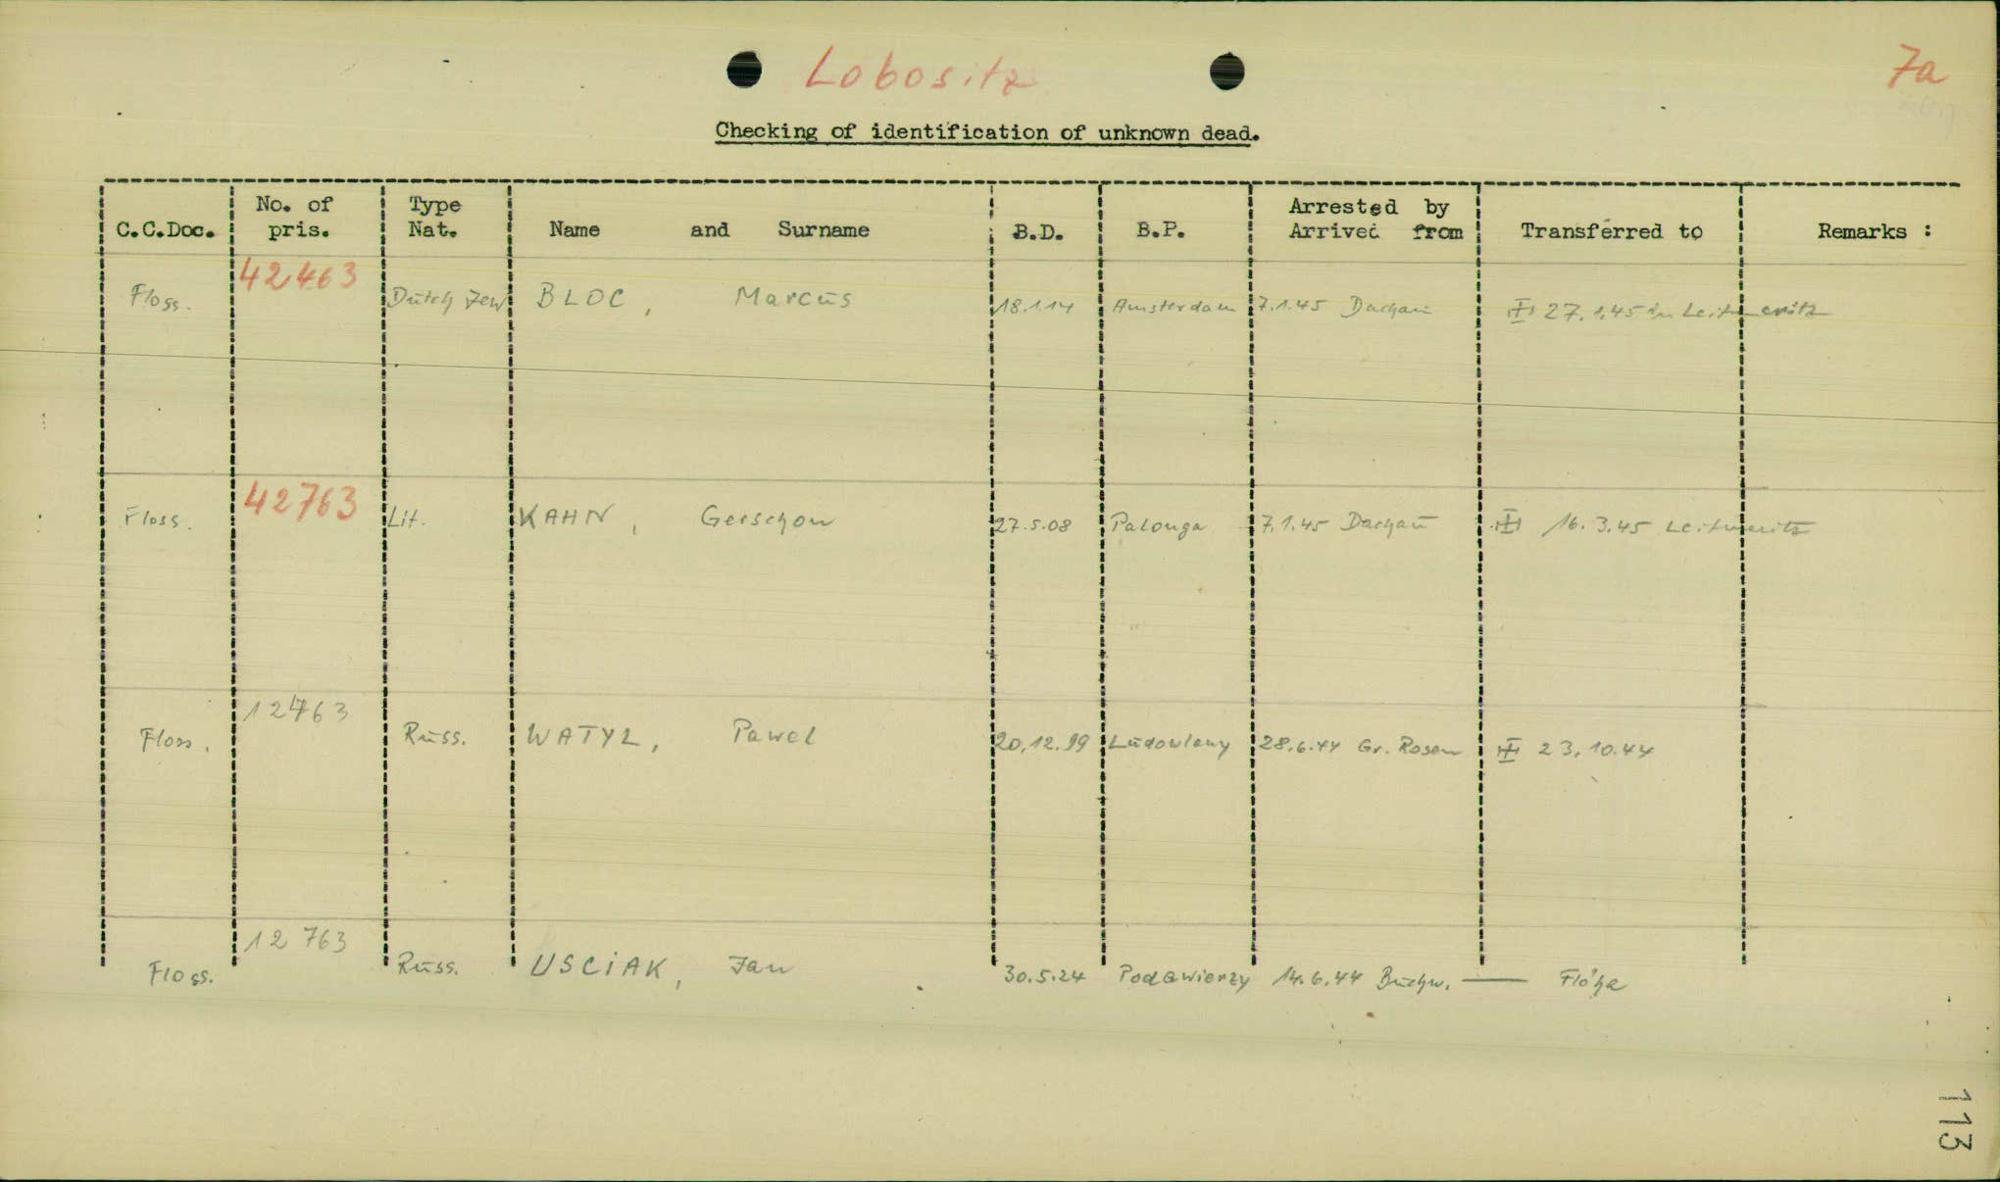 Lobositz
7a
Checking of identification of unknown dead.
C.C.Doc. No. of pris. Type Nat. Name and Surname B.D. B.P. Arrested by Arrived from Transferred to Remarks :
Floss. 42463 Dutch Jew BLOC, Marcus 18.1.14 Amsterdam 7.1.45 Dachau 27.1.45 in Leitmeritz
Floss. 42763 Lit. KAHN, Gerschon 27.5.08 Palonga 7.1.45 Dachau 16.3.45 Leitmeritz
Floss. 12463 Russ. WATYL, Pawel 20.12.99 Ludowlany 28.6.44 Gr. Rosen 23.10.44
Floss. 12763 Russ. USCIAK, Jan 30.5.24 Podawierzy 14.6.44 Buchw. — Flöha
113